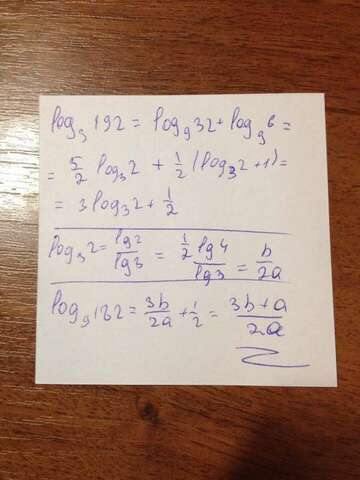 log₉ 192 = log₉ 32 + log₉ 6 =
= 5/2 log₃ 2 + 1/2 (log₃ 2 + 1) =
= 3 log₃ 2 + 1/2
log₃ 2 = lg 2 / lg 3 = 1/2 lg 4 / lg 3 = b / 2a
log₉ 192 = 3b / 2a + 1/2 = 3b + a / 2a